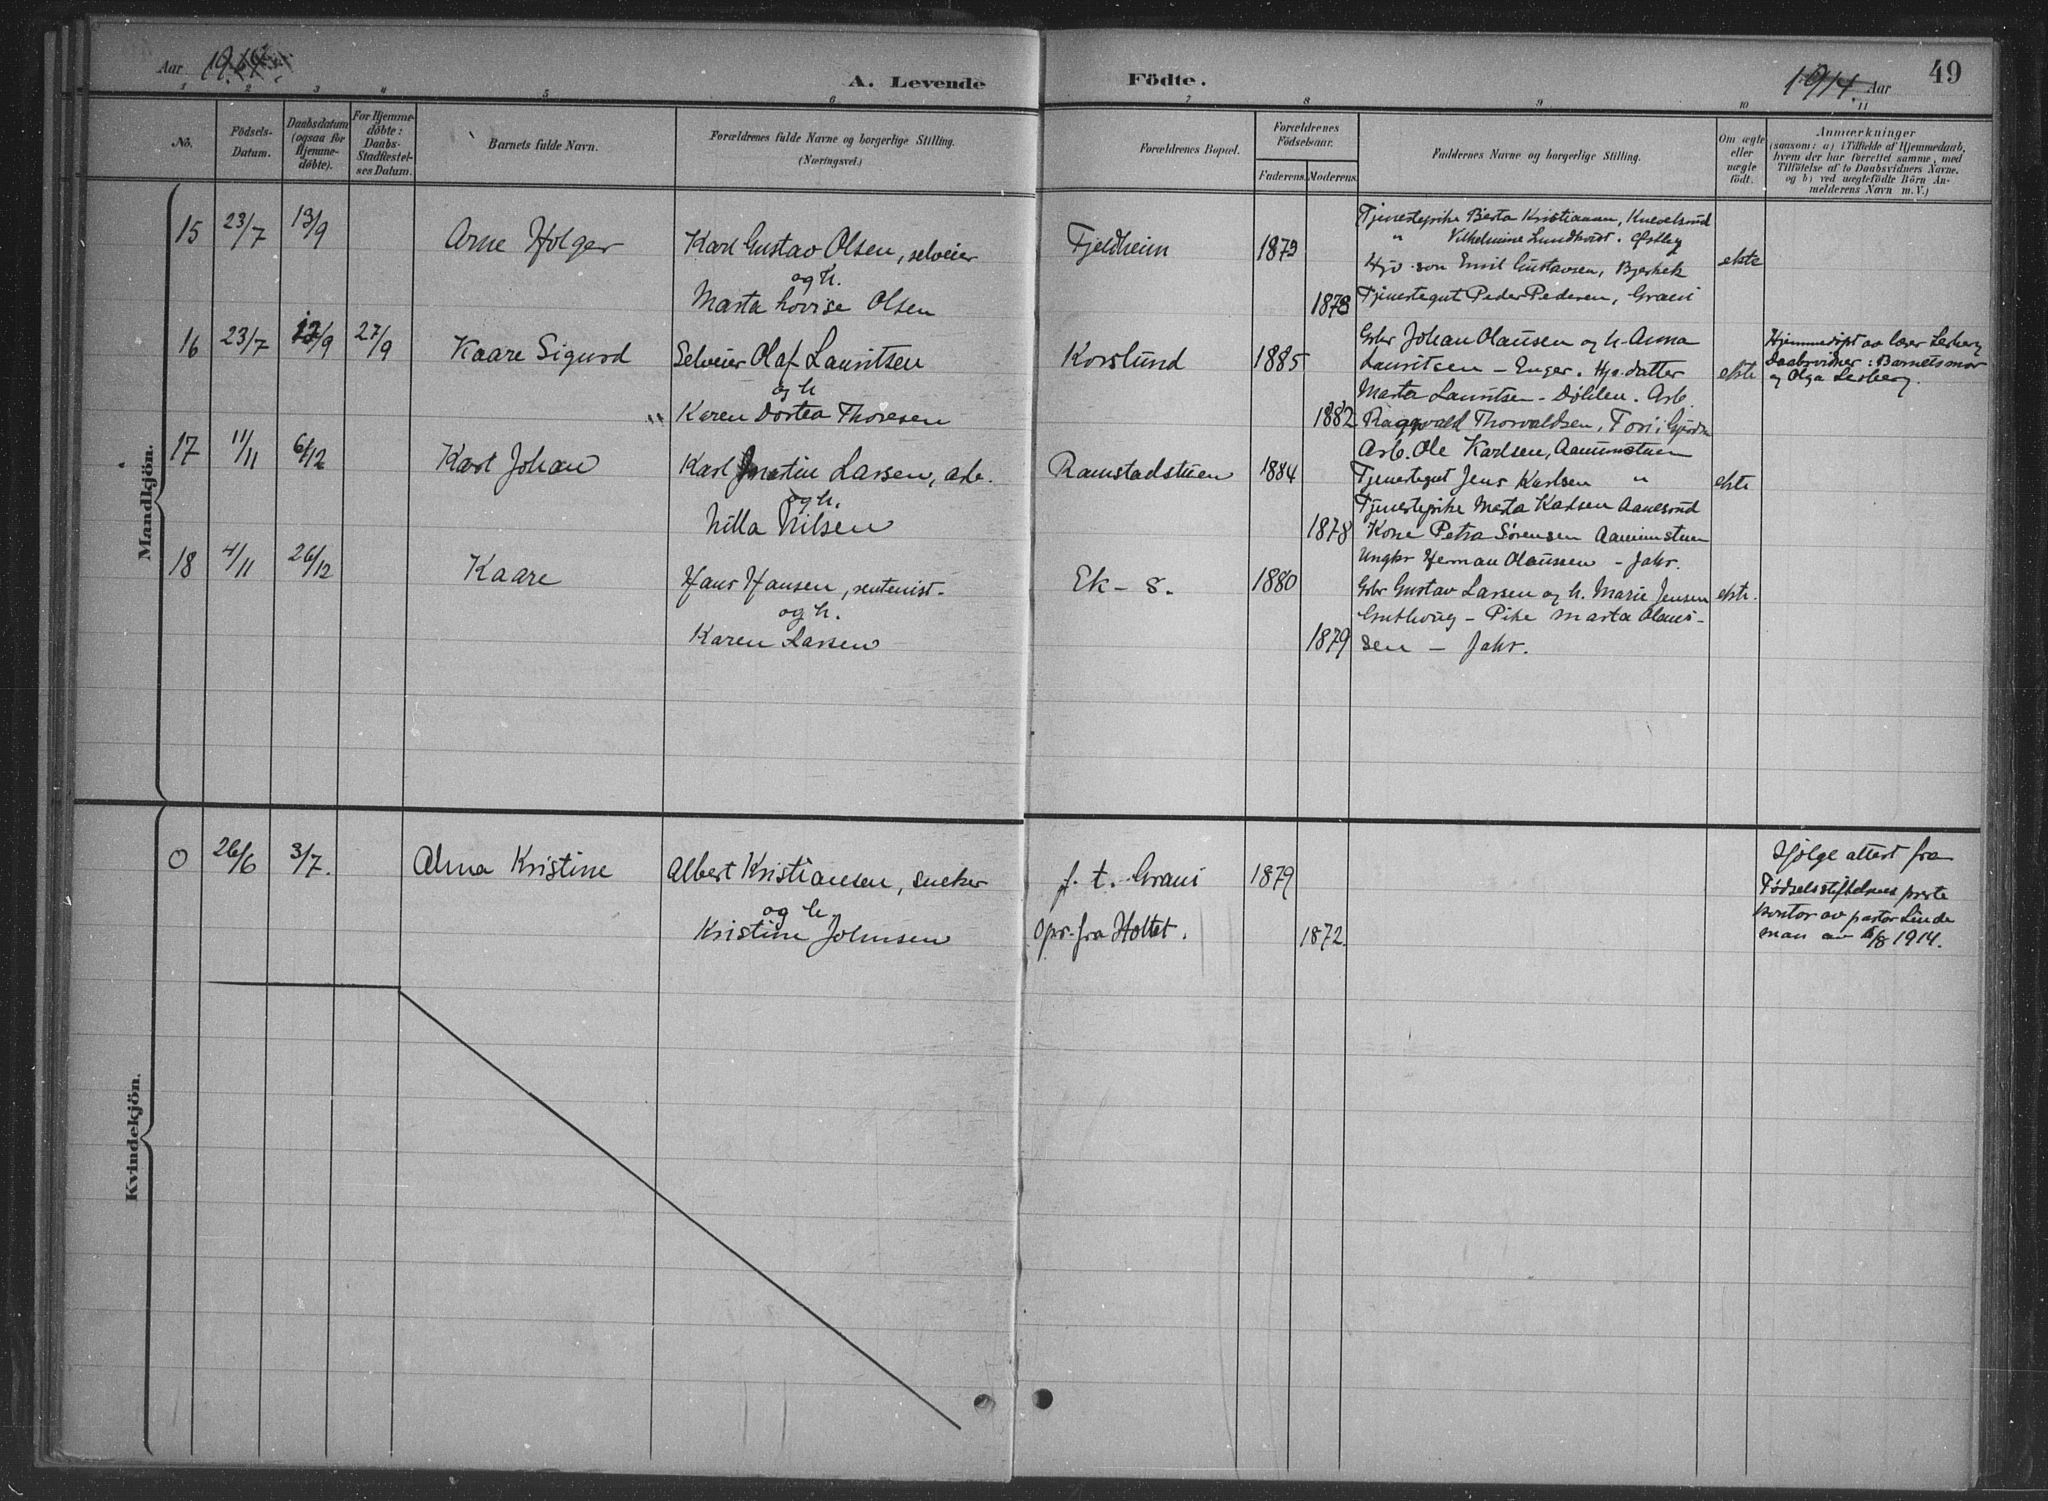 Aar 1914.
A. Levende
Födte.
1914. Aar
49
1 2 3 4 5 6 7 8 9 10 11
No.
Födsels-
Datum.
Daabsdatum
(ogsaa for
Hjemme-
döbte).
For Hjemme-
döbte:
Daabs-
Stadfæstel-
ses Datum.
Barnets fulde Navn.
Forældrenes fulde Navne og borgerlige Stilling.
(Næringsvei.)
Forældrenes Bopæl.
Forældrenes
Födselsaar.
Faderens. Moderens.
Faddernes Navne og borgerlige Stilling.
Om ægte
eller
uægte
födt.
Anmærkninger
(saasom: a) i Tilfælde af Hjemmedaab,
hvem der har forrettet samme, med
Tilföielse af to Daabsvidners Navne.
og b) ved uægtefödte Börn An-
melderens Navn m. V.)
Mandkjön.
15 23/7 13/9 Arne Holger
Karl Gustav Olsen, selveier
og h.
Marta Lovise Olsen
Fjeldheim
1873
1878
Tjenestepike Berta Kristiansen, Knevelsrud
" Vilhelmine Lundkvist. Østby
Hjv. søn Emil Gustavsen, Bjerkek
Tjenestegut Peder Pedersen, Graui
ekte
16 23/7 13/9 27/9 Kaare Sigurd
Selveier Olaf Lauritsen
og h
" Karen Dortea Thoresen
Korslund
1885
1882
Gbr Johan Olausen og h. Anna
Lauritsen - Enger. Hjv. datter
Marta Lauritsen - Dølden. Arb.
Ragnvald Thorvaldsen,
ekte
Hjemmedøpt av lærer Lesberg
Daabsvidner: Barnets mor
og Olga Lesberg.
17 11/11 6/12 Karl Johan
Karl Martin Larsen, arb.
og h.
Nilla Nilsen
Ramstadstuen
1884
1878
Arb. Ole Karlsen, Aamunstuen
Tjenestegut Jens Karlsen "
Tjenestepike Marta Karlsen Aanesrud
Kone Petra Sørensen Aamunstuen
ekte
18 4/11 26/12 Kaare
Hans Hansen, rentenist.
og h.
Karen Larsen
Ek - s.
1880
1879
Ungkr Herman Olaussen - Jahr.
Gbr Gustav Larsen og h. Marie Jensen
- Pike Marta Olaus-
sen - Jahr.
ekte.
Kvindekjön.
0 26/6 3/7. Alma Kristine
Albert Kristiansen, snekker
og h.
Kristine Johnsen
f. t. Graui
Opr. fra Holtet.
1879
1872.
Ifølge attest fra
Fødselsstiftelsens preste
kontor av pastor Linde
man av 6/8 1914.